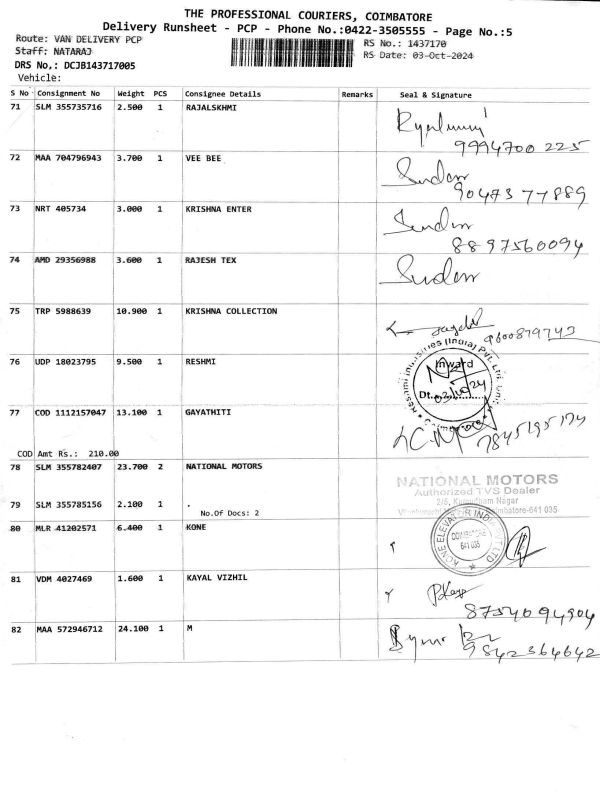 THE PROFESSIONAL COURIERS, COIMBATORE
Delivery Runsheet - PCP - Phone No.:0422-3505555 - Page No.:5
Route: VAN DELIVERY PCP RS No.: 1437170
Staff: NATARAJ RS Date: 03-Oct-2024
DRS No,: DCJB143717005
Vehicle:
S No Consignment No Weight PCS Consignee Details Remarks Seal & Signature
71 SLM 355735716 2.500 1 RAJALSKHMI
9994700 225
72 MAA 704796943 3.700 1 VEE BEE
90473 77889
73 NRT 405734 3.000 1 KRISHNA ENTER
8897560094
74 AMD 29356988 3.600 1 RAJESH TEX
75 TRP 5988639 10.900 1 KRISHNA COLLECTION
9600879743
76 UDP 18023795 9.500 1 RESHMI
Inward
Dt. 03/10/24
77 COD 1112157047 13.100 1 GAYATHITI
7845195174
COD Amt Rs.: 210.00
78 SLM 355782407 23.700 2 NATIONAL MOTORS
NATIONAL MOTORS
Authorized TVS Dealer
79 SLM 355785156 2.100 1 .
No.Of Docs: 2
Coimbatore-641 035
80 MLR 41202571 6.400 1 KONE
KONE ELEVATOR INDIA PVT LTD
COIMBATORE
641 035
81 VDM 4027469 1.600 1 KAYAL VIZHIL
8754094904
82 MAA 572946712 24.100 1 M
9842364642